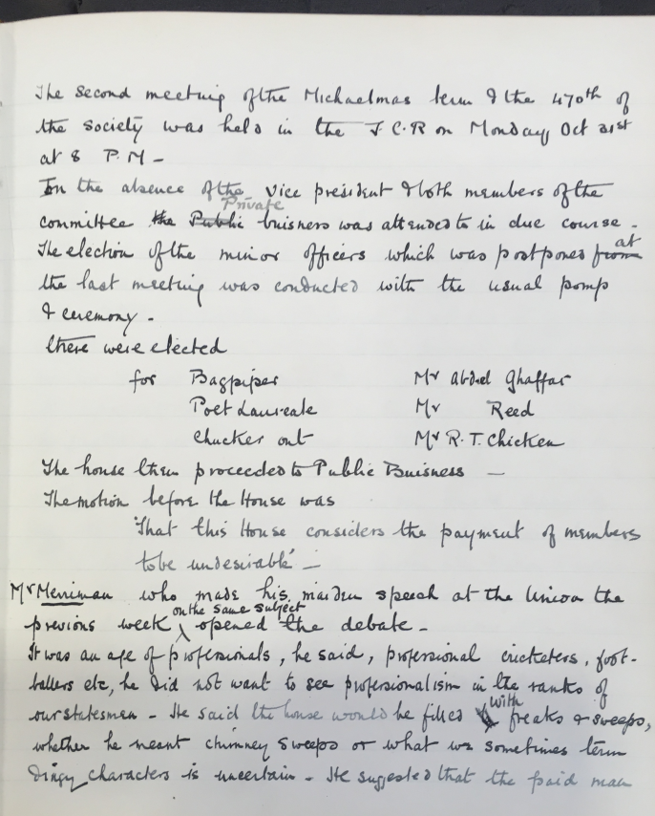 The second meeting of the Michaelmas term & the 470th of
the society was held in the J.C.R on Monday Oct 31st
at 8 P.M -
In the absence of the Vice president & both members of the
Private
committee the Public buisness was attended to in due course -
The election of the minor officers which was postponed from at
the last meeting was conducted with the usual pomp
& ceremony -
there were elected
for Bagpiper Mr Abdel Ghaffar
Poet Laureate Mr Reed
Chucker out Mr R.T. Chicken
The house then proceeded to Public Buisness -
The motion before the House was
'That this House considers the payment of members
to be undesirable' -
Mr Merriman who made his maiden speech at the Union the
on the same subject
previous week opened the debate -
It was an age of professionals, he said, professional cricketers, foot-
ballers etc, he did not want to see professionalism in the ranks of
our statesmen - He said the house would be filled with freaks & sweeps,
whether he meant chimney sweeps or what we sometimes term
dingy characters is uncertain - He suggested that the paid man